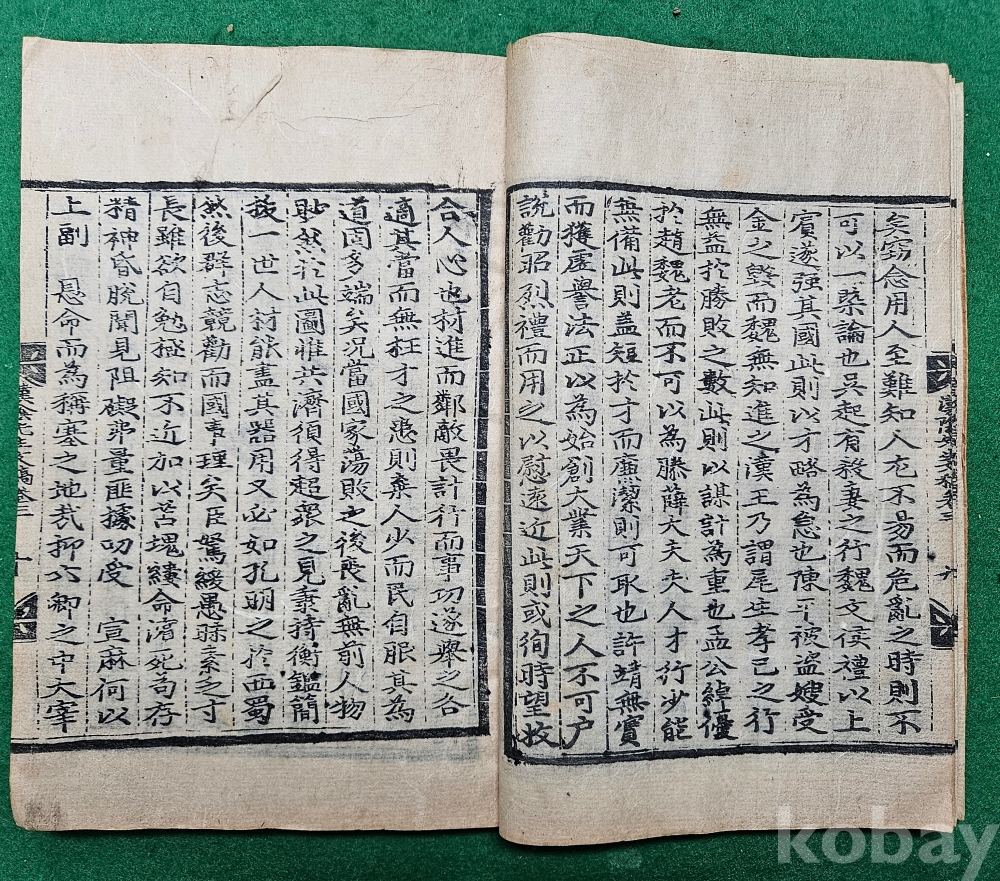 漢陰先生文稿卷三 九
矣窃念用人至難知人尤不易而危亂之時則不
可以一槩論也吳起有殺妻之行魏文侯禮以上
賓遂强其國此則以才略為急也陳平被盜嫂受
金之毀而魏無知進之漢王乃謂尾生孝已之行
無益於勝敗之數此則以謀計為重也孟公綽優
於趙魏老而不可以為滕薛大夫夫人才行少能
無備此則盖短於才而廉潔則可取也許靖無實
而獲虛譽法正以為始創大業天下之人不可户
說勸昭烈禮而用之以慰遠近此則或徇時望收
合人心也材進而鄰敵畏計行而事功遂舉之合
適其當而無枉才之患則棄人少而民自服其為
道固多端矣况當國家蕩敗之後喪亂無前人物
眇然於此圖惟共濟須得超衆之見秉持衡鑑簡
拔一世人材能盡其器用又必如孔明之於西蜀
然後群志競勸而國事理矣臣駑緩愚昧素乏寸
長雖欲自勉極知不近加以苫塊縷命濱死苟存
精神昏脫聞見阻礙弗量匪據叨受 宣麻何以
上副 恩命而為稱塞之地哉抑六卿之中大宰
漢陰先生文稿卷三 十
kobay